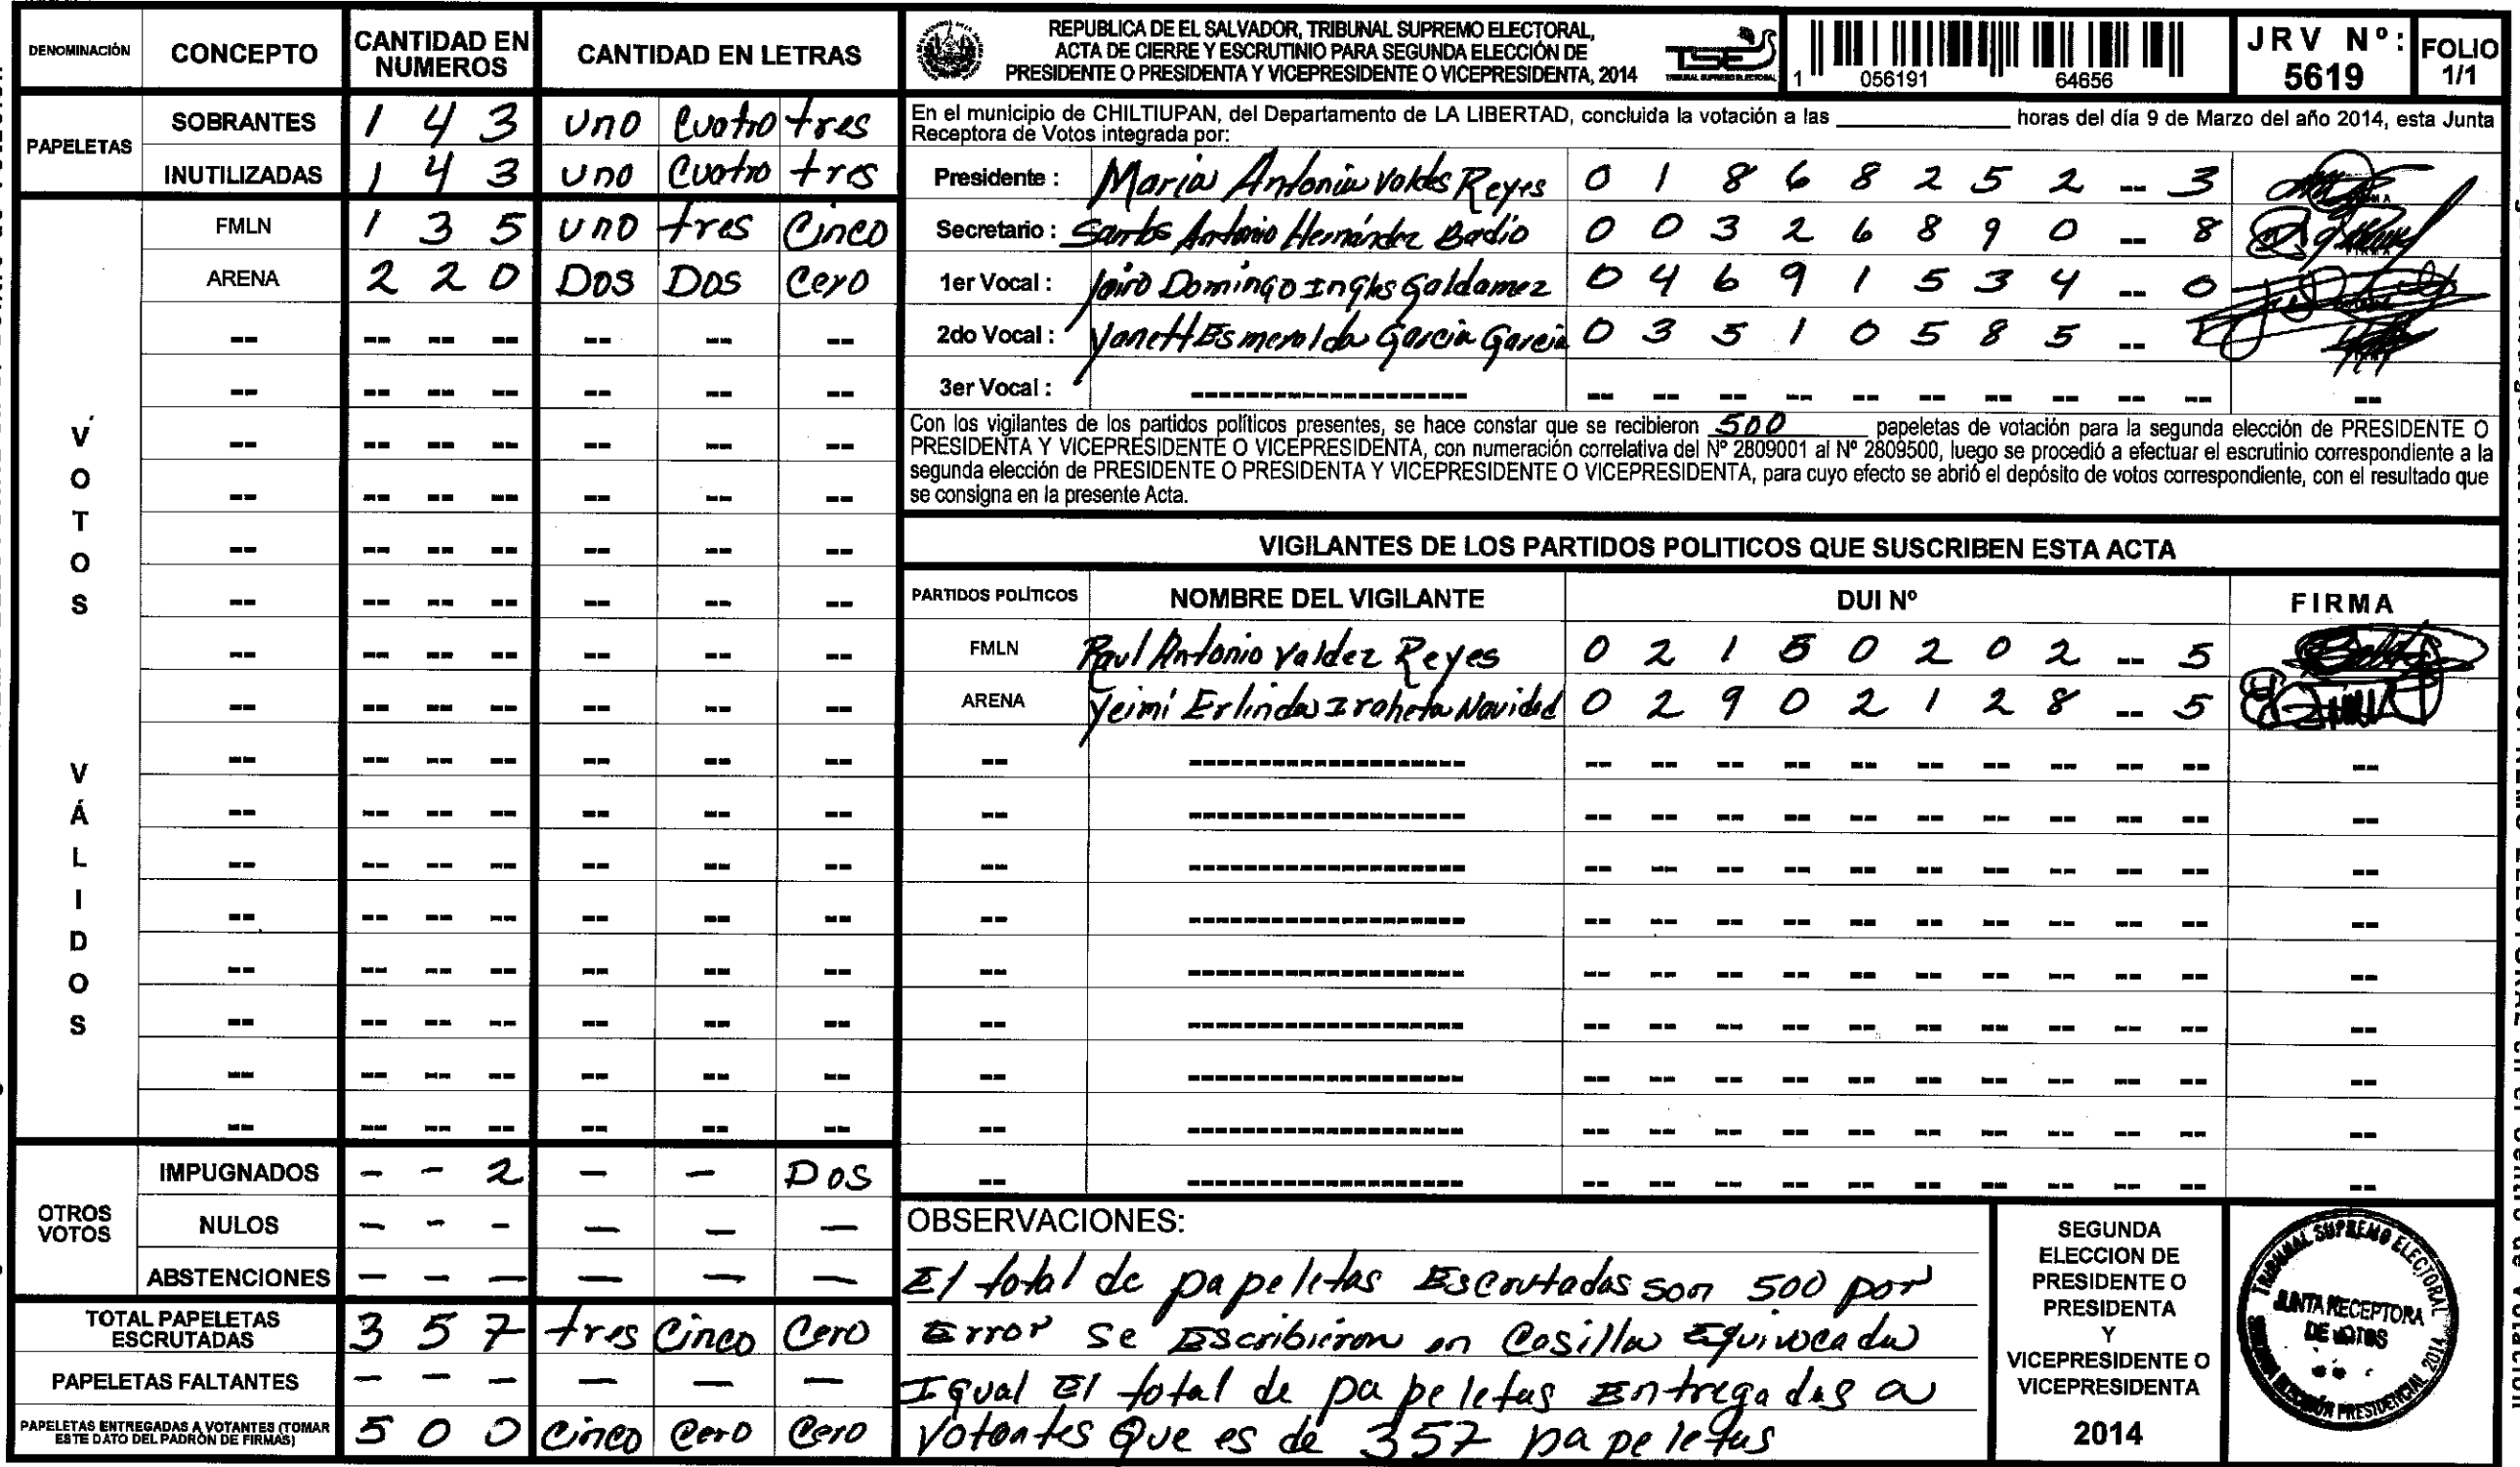 DENOMINACIÓN CONCEPTO CANTIDAD EN NUMEROS CANTIDAD EN LETRAS
PAPELETAS
SOBRANTES 1 4 3 uno cuatro tres
INUTILIZADAS 1 4 3 uno cuatro tres
VOTOS VÁLIDOS
FMLN 1 3 5 uno tres Cinco
ARENA 2 2 0 DOS DOS Cero
OTROS VOTOS
IMPUGNADOS - - 2 - - DOS
NULOS - - - - - -
ABSTENCIONES - - - - - -
TOTAL PAPELETAS ESCRUTADAS 3 5 7 tres Cinco Cero
PAPELETAS FALTANTES - - - - - -
PAPELETAS ENTREGADAS A VOTANTES (TOMAR ESTE DATO DEL PADRÓN DE FIRMAS) 5 0 0 Cinco Cero Cero
REPUBLICA DE EL SALVADOR, TRIBUNAL SUPREMO ELECTORAL,
ACTA DE CIERRE Y ESCRUTINIO PARA SEGUNDA ELECCIÓN DE
PRESIDENTE O PRESIDENTA Y VICEPRESIDENTE O VICEPRESIDENTA, 2014
TSE
TRIBUNAL SUPREMO ELECTORAL
1 056191 64656
JRV Nº: 5619
FOLIO 1/1
En el municipio de CHILTIUPAN, del Departamento de LA LIBERTAD, concluida la votación a las ____ horas del día 9 de Marzo del año 2014, esta Junta
Receptora de Votos integrada por:
Presidente : Maria Antonia Valdes Reyes 0 1 8 6 8 2 5 2 -- 3
Secretario : Santos Antonio Hernández Badio 0 0 3 2 6 8 9 0 -- 8
1er Vocal : Jairo Domingo Ingles Galdamez 0 4 6 9 1 5 3 4 -- 0
2do Vocal : Yanett Esmeralda Garcia Garcia 0 3 5 1 0 5 8 5 --
3er Vocal :
Con los vigilantes de los partidos políticos presentes, se hace constar que se recibieron 500 papeletas de votación para la segunda elección de PRESIDENTE O
PRESIDENTA Y VICEPRESIDENTE O VICEPRESIDENTA, con numeración correlativa del Nº 2809001 al Nº 2809500, luego se procedió a efectuar el escrutinio correspondiente a la
segunda elección de PRESIDENTE O PRESIDENTA Y VICEPRESIDENTE O VICEPRESIDENTA, para cuyo efecto se abrió el depósito de votos correspondiente, con el resultado que
se consigna en la presente Acta.
VIGILANTES DE LOS PARTIDOS POLITICOS QUE SUSCRIBEN ESTA ACTA
PARTIDOS POLÍTICOS NOMBRE DEL VIGILANTE DUI Nº FIRMA
FMLN Raul Antonio Valdez Reyes 0 2 1 5 0 2 0 2 -- 5
ARENA Yeimi Erlinda Iraheta Navidad 0 2 9 0 2 1 2 8 -- 5
OBSERVACIONES:
El total de papeletas Escrutadas son 500 por
Error se Escribieron en Casilla Equivocada
Igual El total de papeletas Entregadas a
Votantes Que es de 357 papeletas
SEGUNDA
ELECCION DE
PRESIDENTE O
PRESIDENTA
Y
VICEPRESIDENTE O
VICEPRESIDENTA
2014
TRIBUNAL SUPREMO ELECTORAL
JUNTA RECEPTORA
DE VOTOS